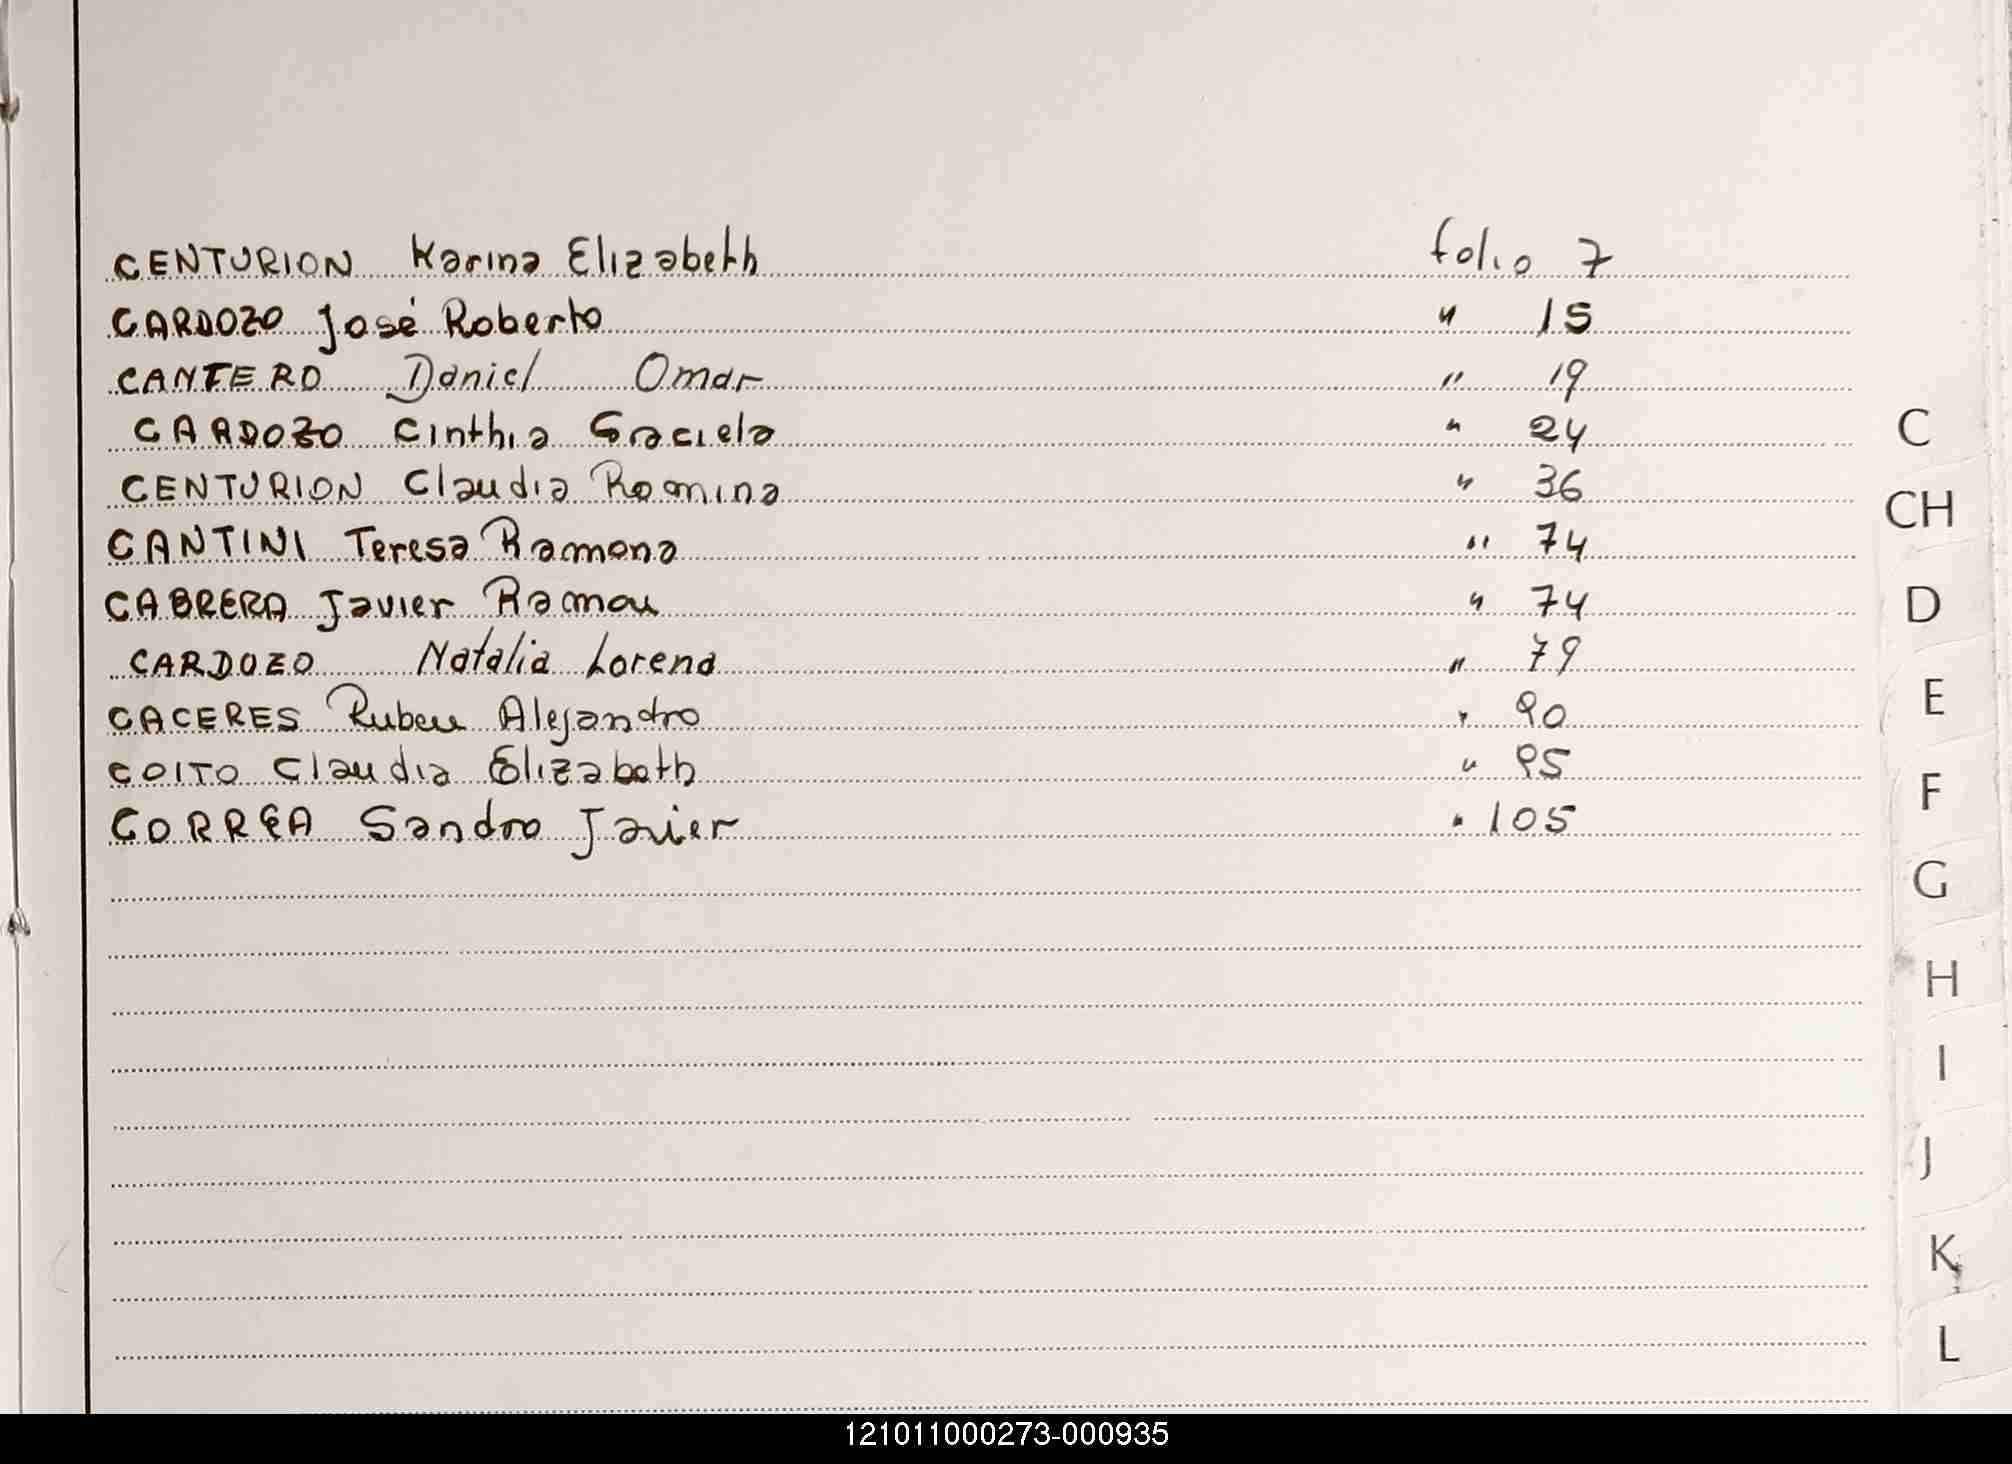 CENTURION Karina Elizabeth folio 7
CARDOZO José Roberto " 15
CANTERO Daniel Omar " 19
CARDOZO Cinthia Graciela " 24
CENTURION Claudia Romina " 36
CANTINI Teresa Ramona " 74
CABRERA Javier Ramon " 74
CARDOZO Natalia Lorena " 79
CACERES Ruben Alejandro " 90
COITO Claudia Elizabeth " 95
CORREA Sandro Javier " 105
C
CH
D
E
F
G
H
I
J
K
L
121011000273-000935